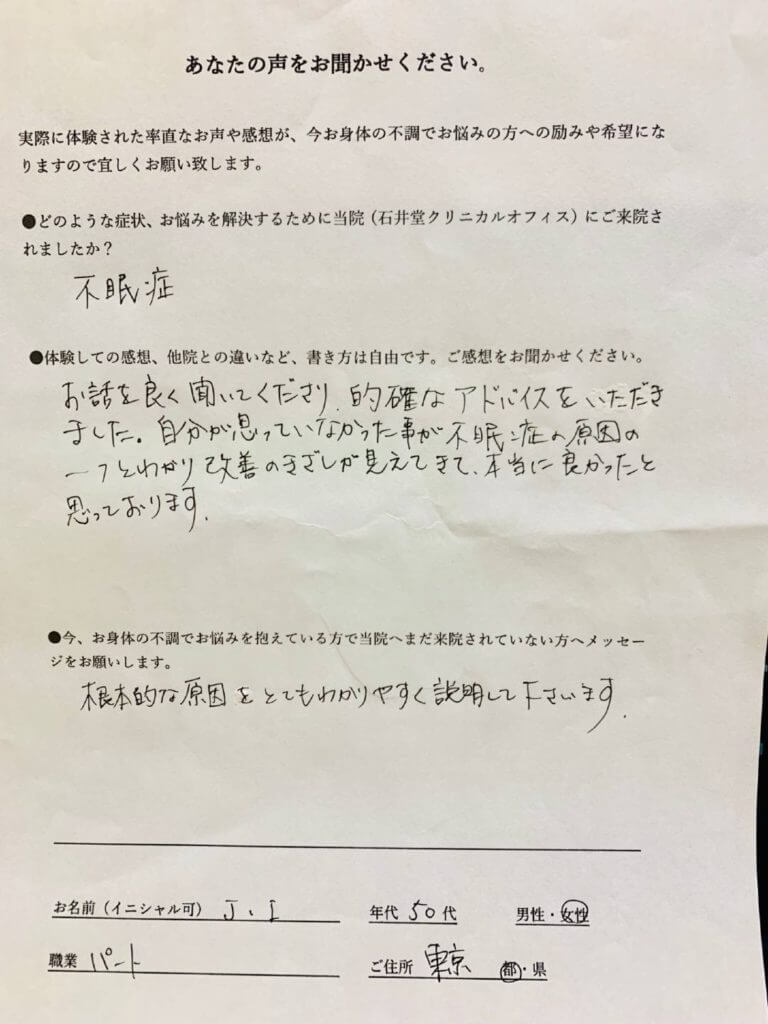 あなたの声をお聞かせください。
実際に体験された率直なお声や感想が、今お身体の不調でお悩みの方への励みや希望にな
りますので宜しくお願い致します。
●どのような症状、お悩みを解決するために当院（石井堂クリニカルオフィス）にご来院さ
れましたか？
不眠症
●体験しての感想、他院との違いなど、書き方は自由です。ご感想をお聞かせください。
お話を良く聞いてくださり、的確なアドバイスをいただき
ました。自分が思っていなかった事が不眠症の原因の
一つとわかり改善のきざしが見えてきて、本当に良かったと
思っております。
●今、お身体の不調でお悩みを抱えている方で当院へまだ来院されていない方へメッセー
ジをお願いします。
根本的な原因をとてもわかりやすく説明して下さいます。
お名前（イニシャル可） J.I 年代 50代 男性・女性
職業 パート ご住所 東京 都・県